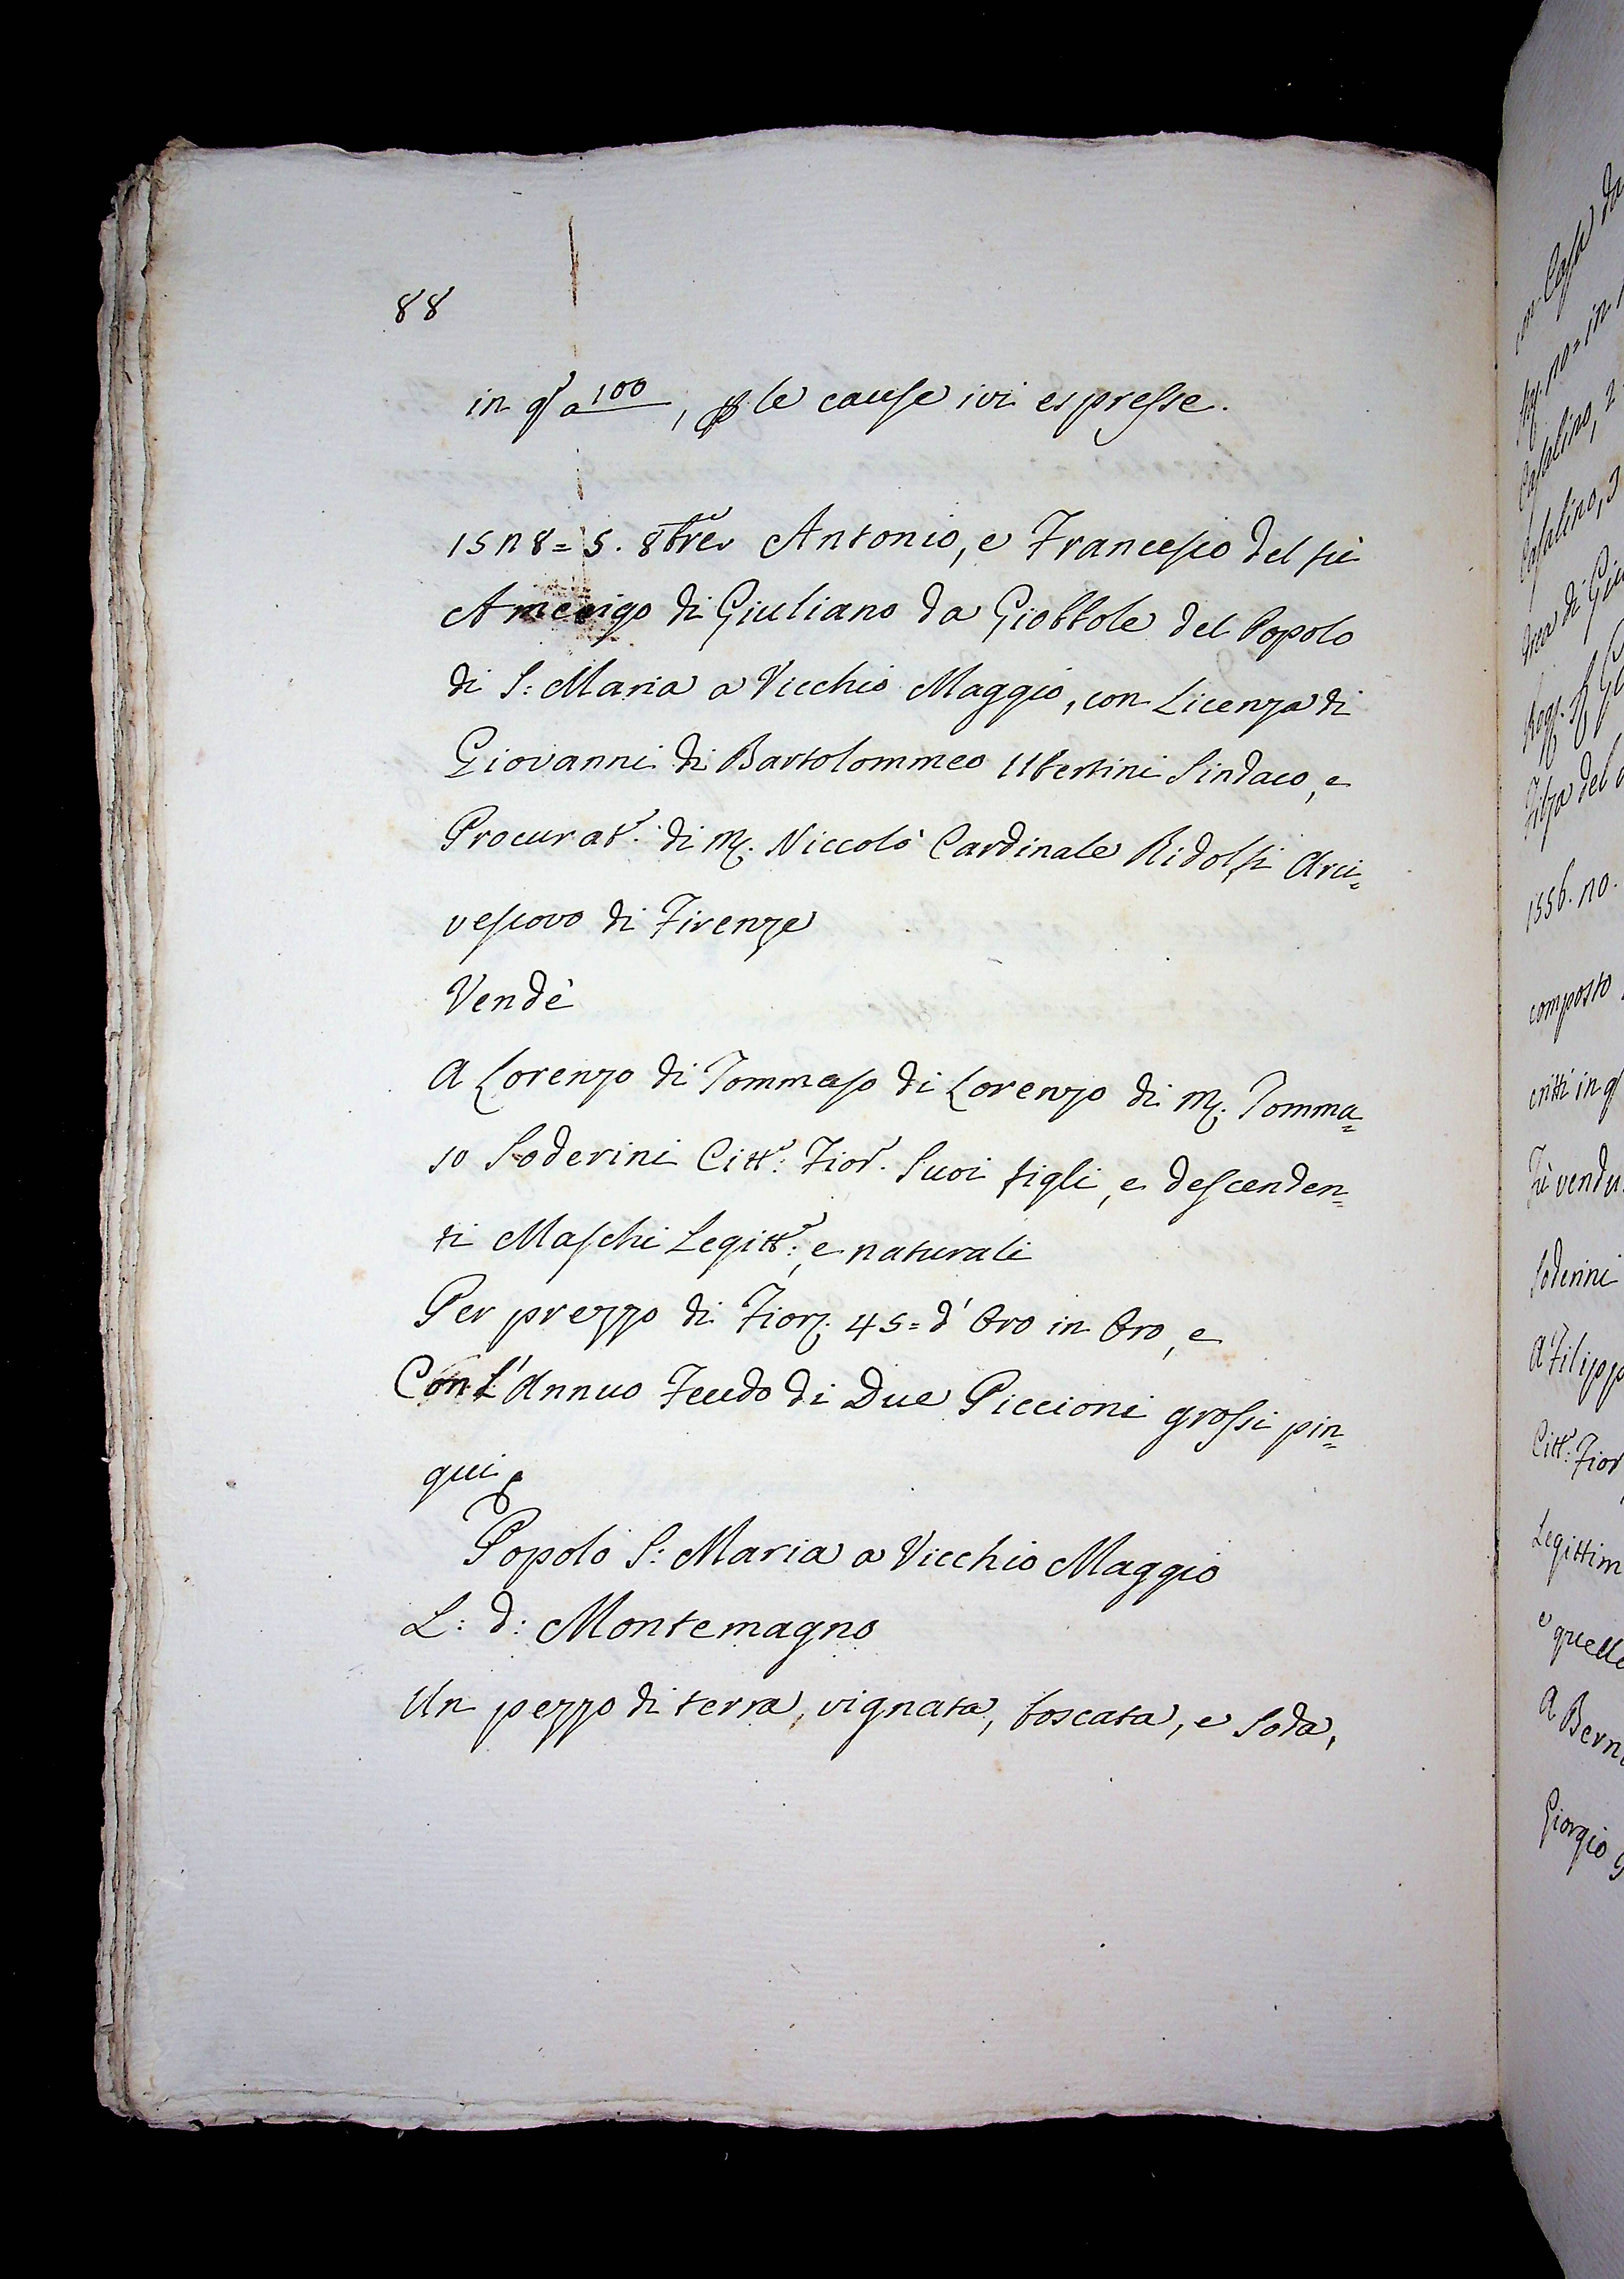 88
in q.to a 100, p le cause ivi espresse.
1528 = 5. 8bre Antonio, e Francesco del fù
Amerigo di Giuliano da Giottole del Popolo
di S: Maria a Vicchio Maggio, con Licenza di
Giovanni di Bartolommeo Ubertini Sindaco, e
Procurat.e di M. Niccolò Cardinale Ridolfi Arci=
vescovo di Firenze
Vendè
A Lorenzo di Tommaso di Lorenzo di M. Tomma=
so Soderini Citt.o: Fior.o Suoi figli, e descenden=
ti Maschi Legitt.i: e naturali
Per prezzo di Fior. 45 = d'Oro in Oro, e
Con l'Annuo Feudo di Due Piccioni grossi pin=
gui
Popolo S: Maria a Vicchio Maggio
L: d: Montemagno
Un pezzo di terra, vignata, boscata, e soda,
Casalino, 2
Casalino, 3
1556. no.
composto
critti in q
Fù vendu
Soderini
A Filippo
Citt.o: Fior
Legittim
e quelle
A Bern
Giorgio